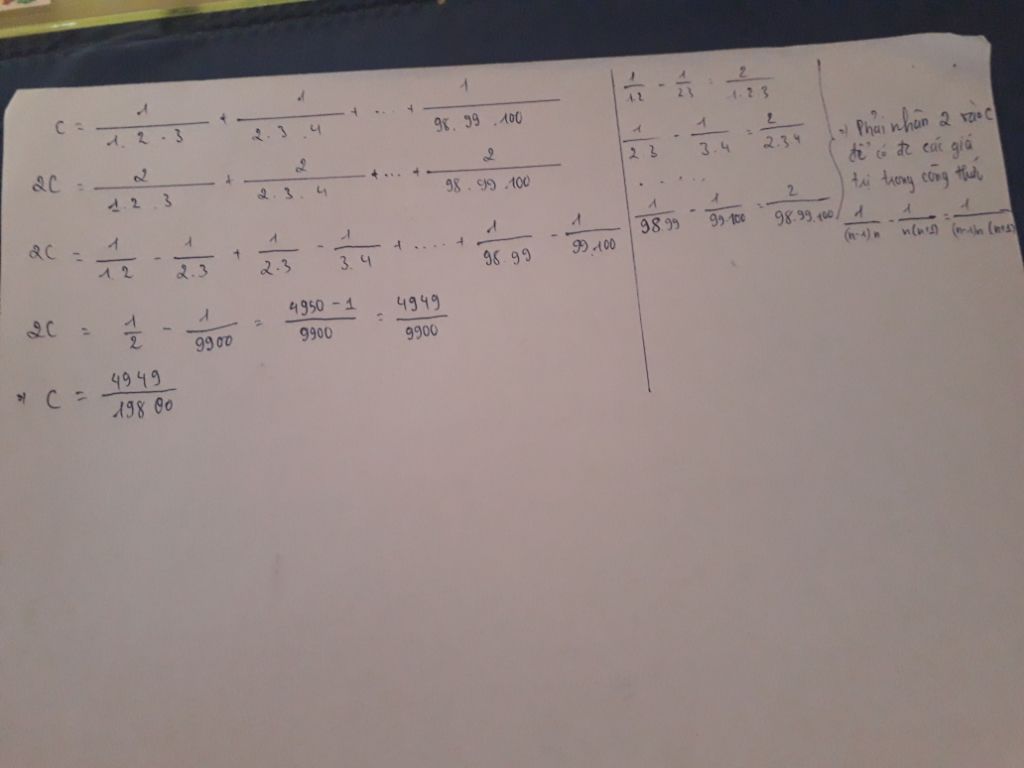 C = 1/(1.2.3) + 1/(2.3.4) + ... + 1/(98.99.100)
2C = 2/(1.2.3) + 2/(2.3.4) + ... + 2/(98.99.100)
2C = 1/(1.2) - 1/(2.3) + 1/(2.3) - 1/(3.4) + .... + 1/(98.99) - 1/(99.100)
2C = 1/2 - 1/9900 = (4950 - 1)/9900 = 4949/9900
⇒ C = 4949/19800
1/(1.2) - 1/(2.3) = 2/(1.2.3)
1/(2.3) - 1/(3.4) = 2/(2.3.4)
. . . . .
1/(98.99) - 1/(99.100) = 2/(98.99.100)
⇒ Phải nhân 2 vào C
để có đc các giá
trị trong công thức
1/((n-1)n) - 1/(n(n+1)) = 1/((n-1)n(n+1))